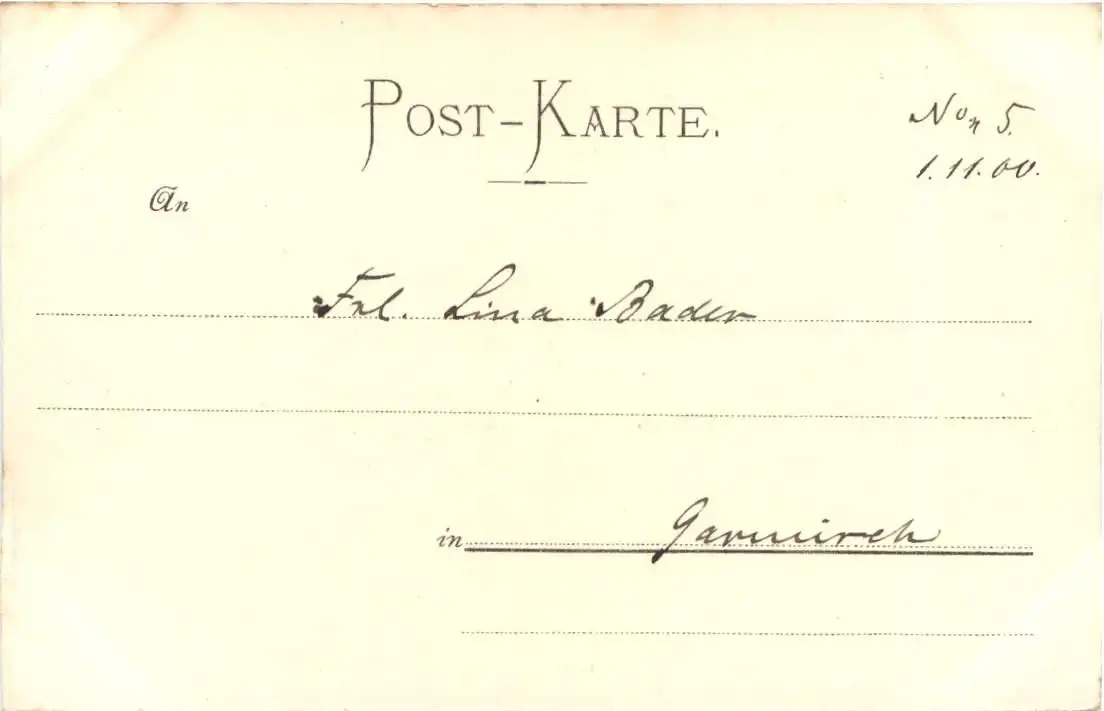 POST-KARTE.
No 5.
1.11.00.
An
Frl. Lina Bader
in Garmisch